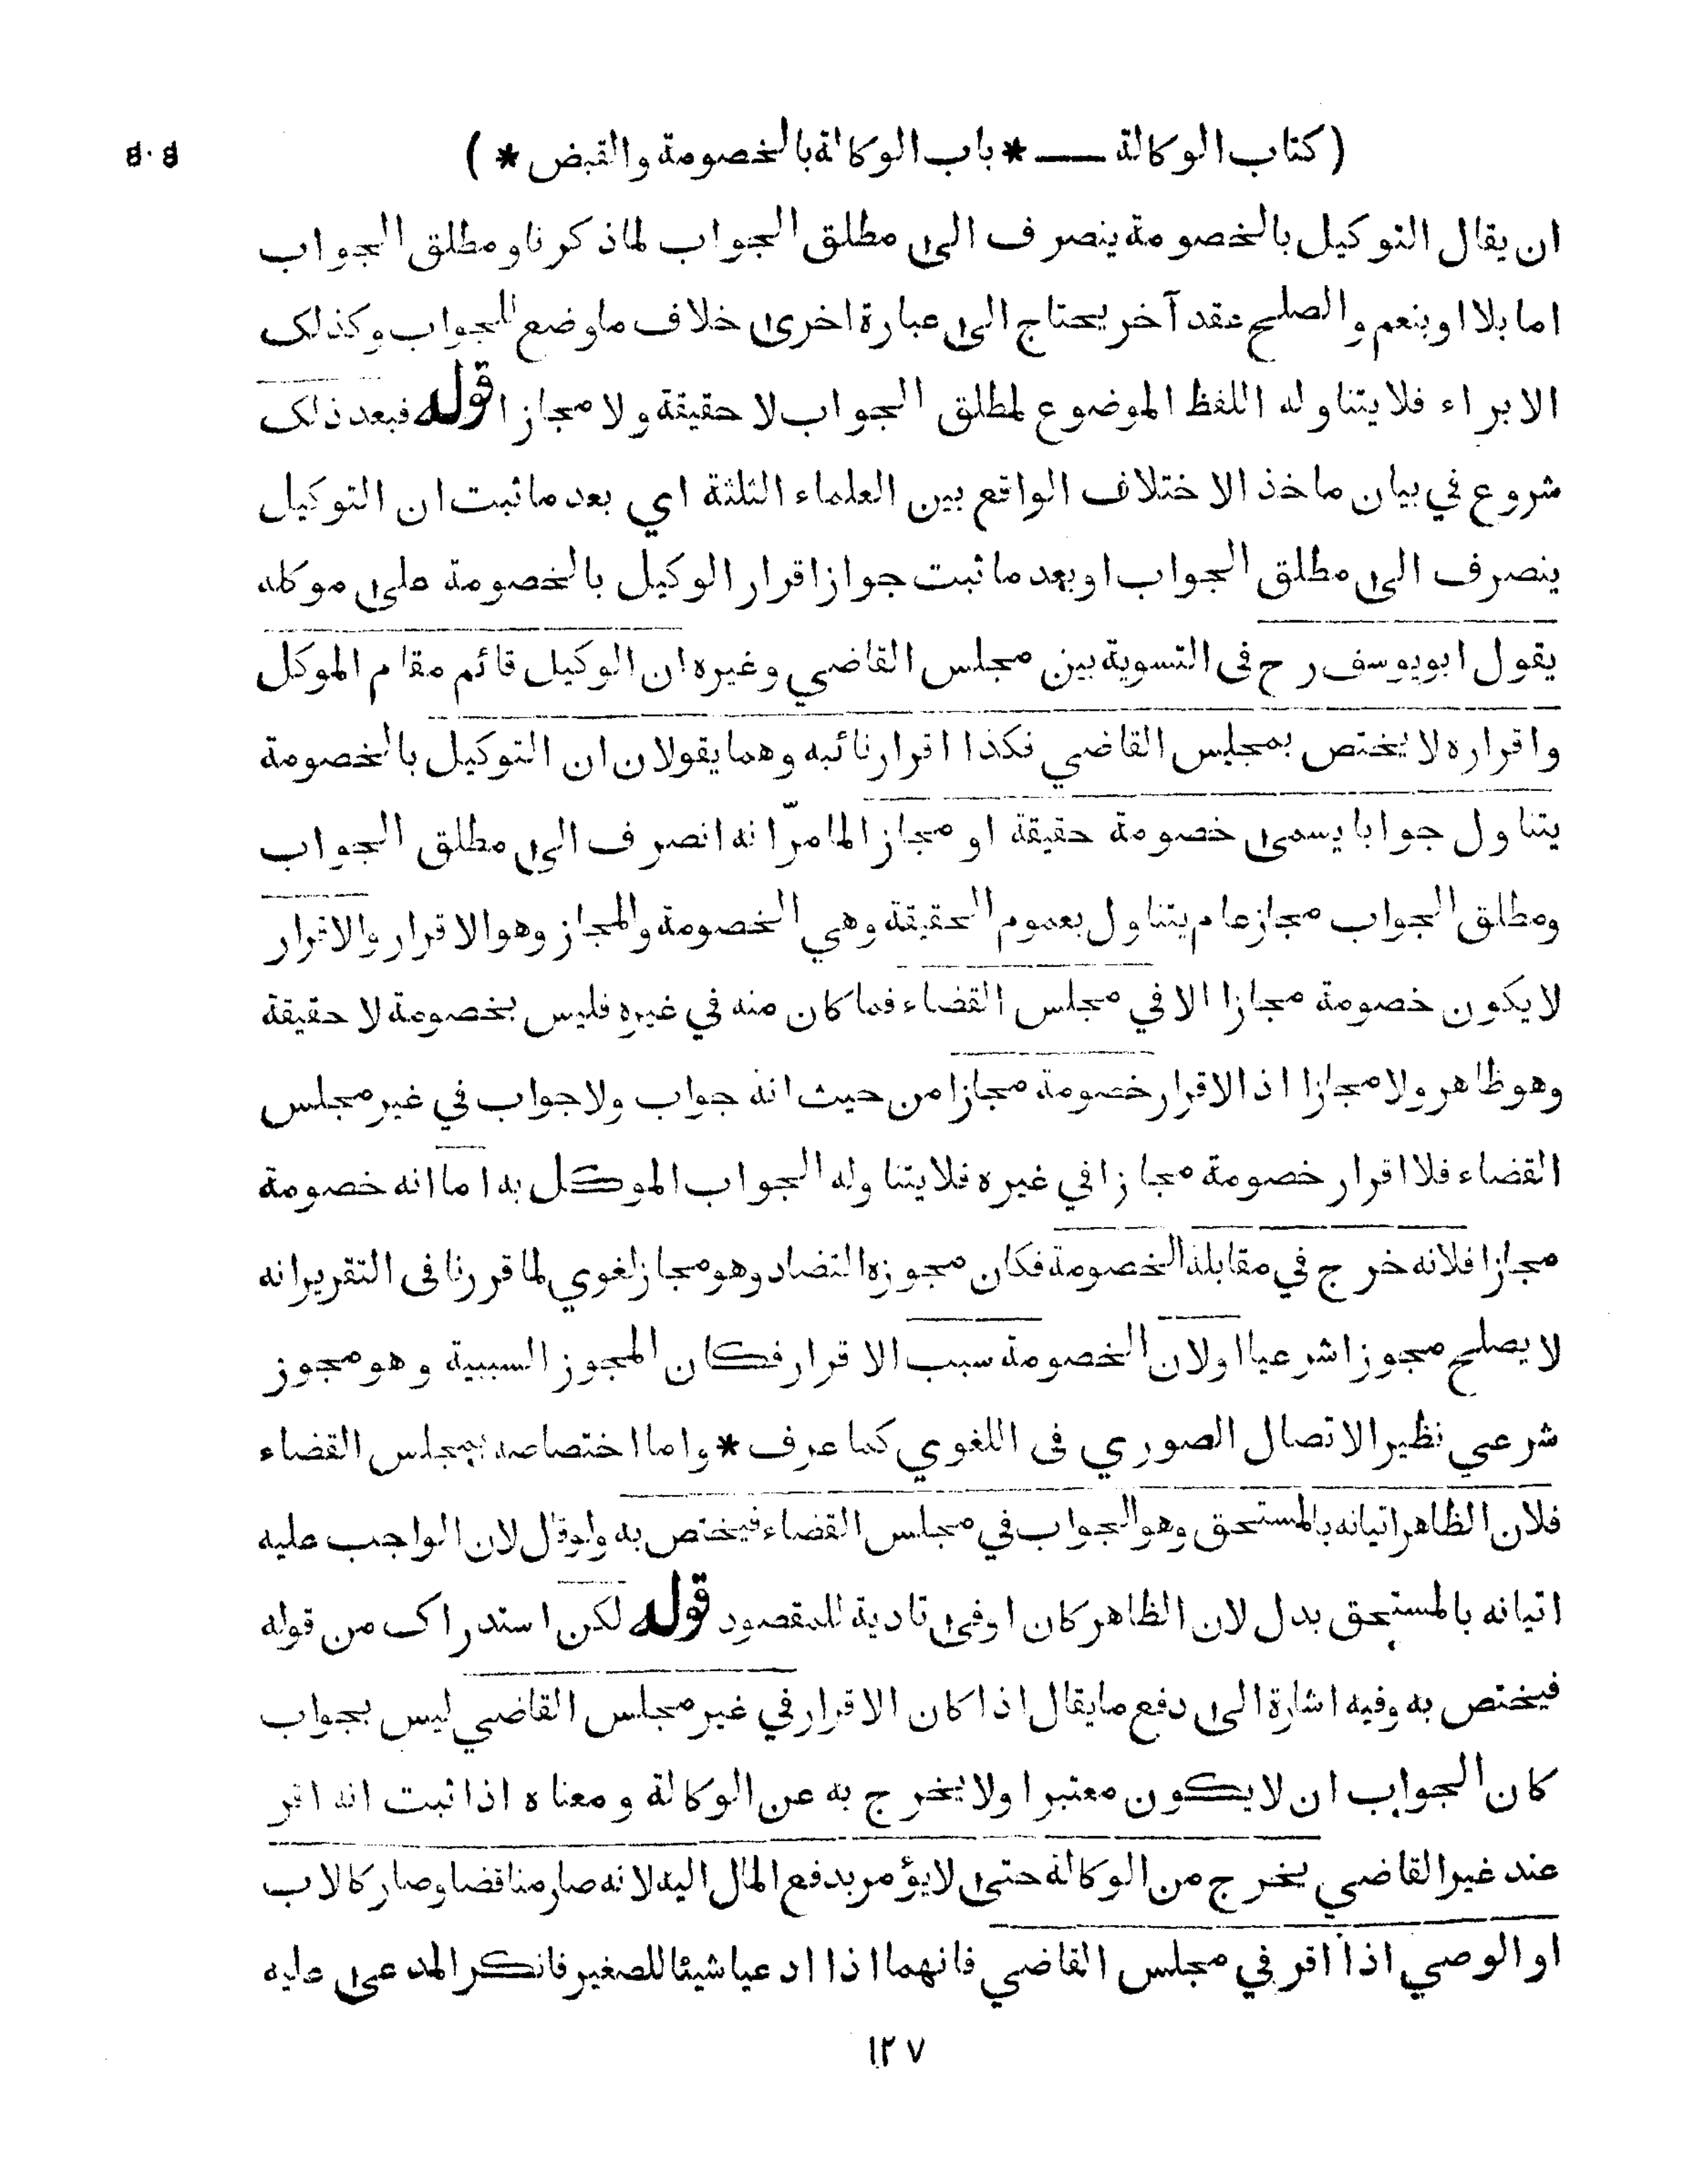 (كتاب الوكالة — * باب الوكالة بالخصومة والقبض * )
ان يقال التوكيل بالخصومة ينصرف الى مطلق الجواب لماذكرنا ومطلق الجواب
اما بلا او بنعم والصلح عقد آخر يحتاج الى عبارة اخرى خلاف ماوضع للجواب وكذلك
الابراء فلا يتناوله اللفظ الموضوع لمطلق الجواب لا حقيقة ولا مجازا قوله فبعد ذلك
شروع في بيان ماخذ الاختلاف الواقع بين العلماء الثلثة اي بعد ماثبت ان التوكيل
ينصرف الى مطلق الجواب او بعد ماثبت جواز اقرار الوكيل بالخصومة على موكله
يقول ابويوسف رح فى التسوية بين مجلس القاضي وغيره ان الوكيل قائم مقام الموكل
واقراره لا يختص بمجلس القاضي فكذا اقرار نائبه وهما يقولان ان التوكيل بالخصومة
يتناول جوابا يسمى خصومة حقيقة او مجازا لما مرّ انه انصرف الى مطلق الجواب
ومطلق الجواب مجاز عام يتناول بعموم الحقيقة وهي الخصومة والمجاز وهو الاقرار والاقرار
لا يكون خصومة مجازا الا في مجلس القضاء فما كان منه في غيره فليس بخصومة لا حقيقة
وهو ظاهر ولا مجازا اذ الاقرار خصومة مجازا من حيث انه جواب ولا جواب في غير مجلس
القضاء فلا اقرار خصومة مجازا في غيره فلا يتناوله الجواب الموكل به اما انه خصومة
مجازا فلانه خرج في مقابلة الخصومة فكان مجوزه التضاد وهو مجاز لغوي لما قررنا فى التقرير انه
لا يصلح مجوزا شرعيا اولان الخصومة سبب الاقرار فكان المجوز السببية وهو مجوز
شرعي نظير الاتصال الصوري فى اللغوي كما عرف * واما اختصاصه بمجلس القضاء
فلان الظاهر اتيانه بالمستحق وهو الجواب في مجلس القضاء فيختص به ولوقال لان الواجب عليه
اتيانه بالمستحق بدل لان الظاهر كان اوفى تادية للمقصود قوله لكن استدراك من قوله
فيختص به وفيه اشارة الى دفع مايقال اذا كان الاقرار في غير مجلس القاضي ليس بجواب
كان الجواب ان لا يكون معتبرا ولا يخرج به عن الوكالة ومعناه اذا ثبت انه اقر
عند غير القاضي يخرج من الوكالة حتى لا يؤمر بدفع المال اليه لانه صار مناقضا وصار كالاب
او الوصي اذا اقر في مجلس القاضي فانهما اذا ادعيا شيئا للصغير فانكر المدعى عليه
١٢٧